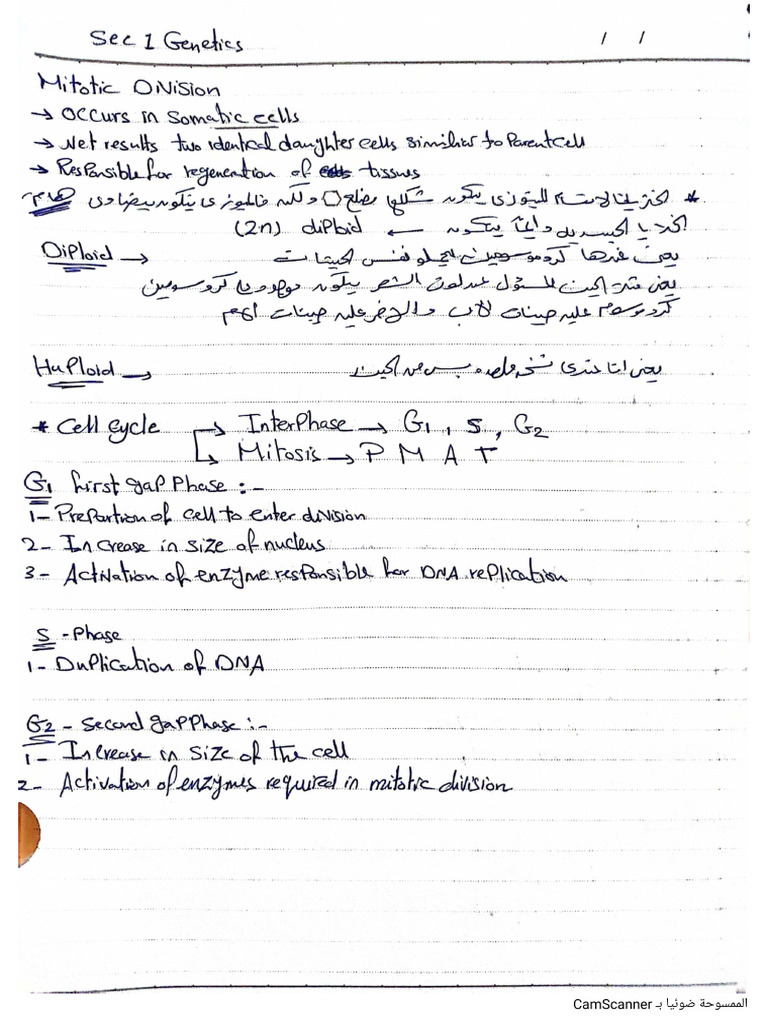 Sec 1 Genetics / /
Mitotic Division
→ Occurs in Somatic cells
→ Net results two identical daughter cells similier to Parent cell
→ Responsible for regeneration of tissues
* شكلها مضلع ولكنه هام
الخلايا الجسديه دايماً بتكون ← diploid (2n)
Diploid → يعني عندها كروموسومين نفس الجينات
يعني الجين المسئول عن لون الشعر بيكون موجود كروسومين
كروموسوم عليه جينات الأب والاخر عليه جينات الام
Haploid → يعني انا عندي نسخه واحده بس من الجين
* Cell cycle → InterPhase → G1, S, G2
→ Mitosis → P M A T
G1 first gap Phase :-
1- Prepartion of cell to enter division
2- Increase in size of nucleus
3- Activation of enzyme responsible for DNA replication
S - Phase
1- Duplication of DNA
G2 - Second gap Phase :-
1- Increase in size of the cell
2- Activation of enzymes required in mitotic division
الممسوحة ضوئيا بـ CamScanner